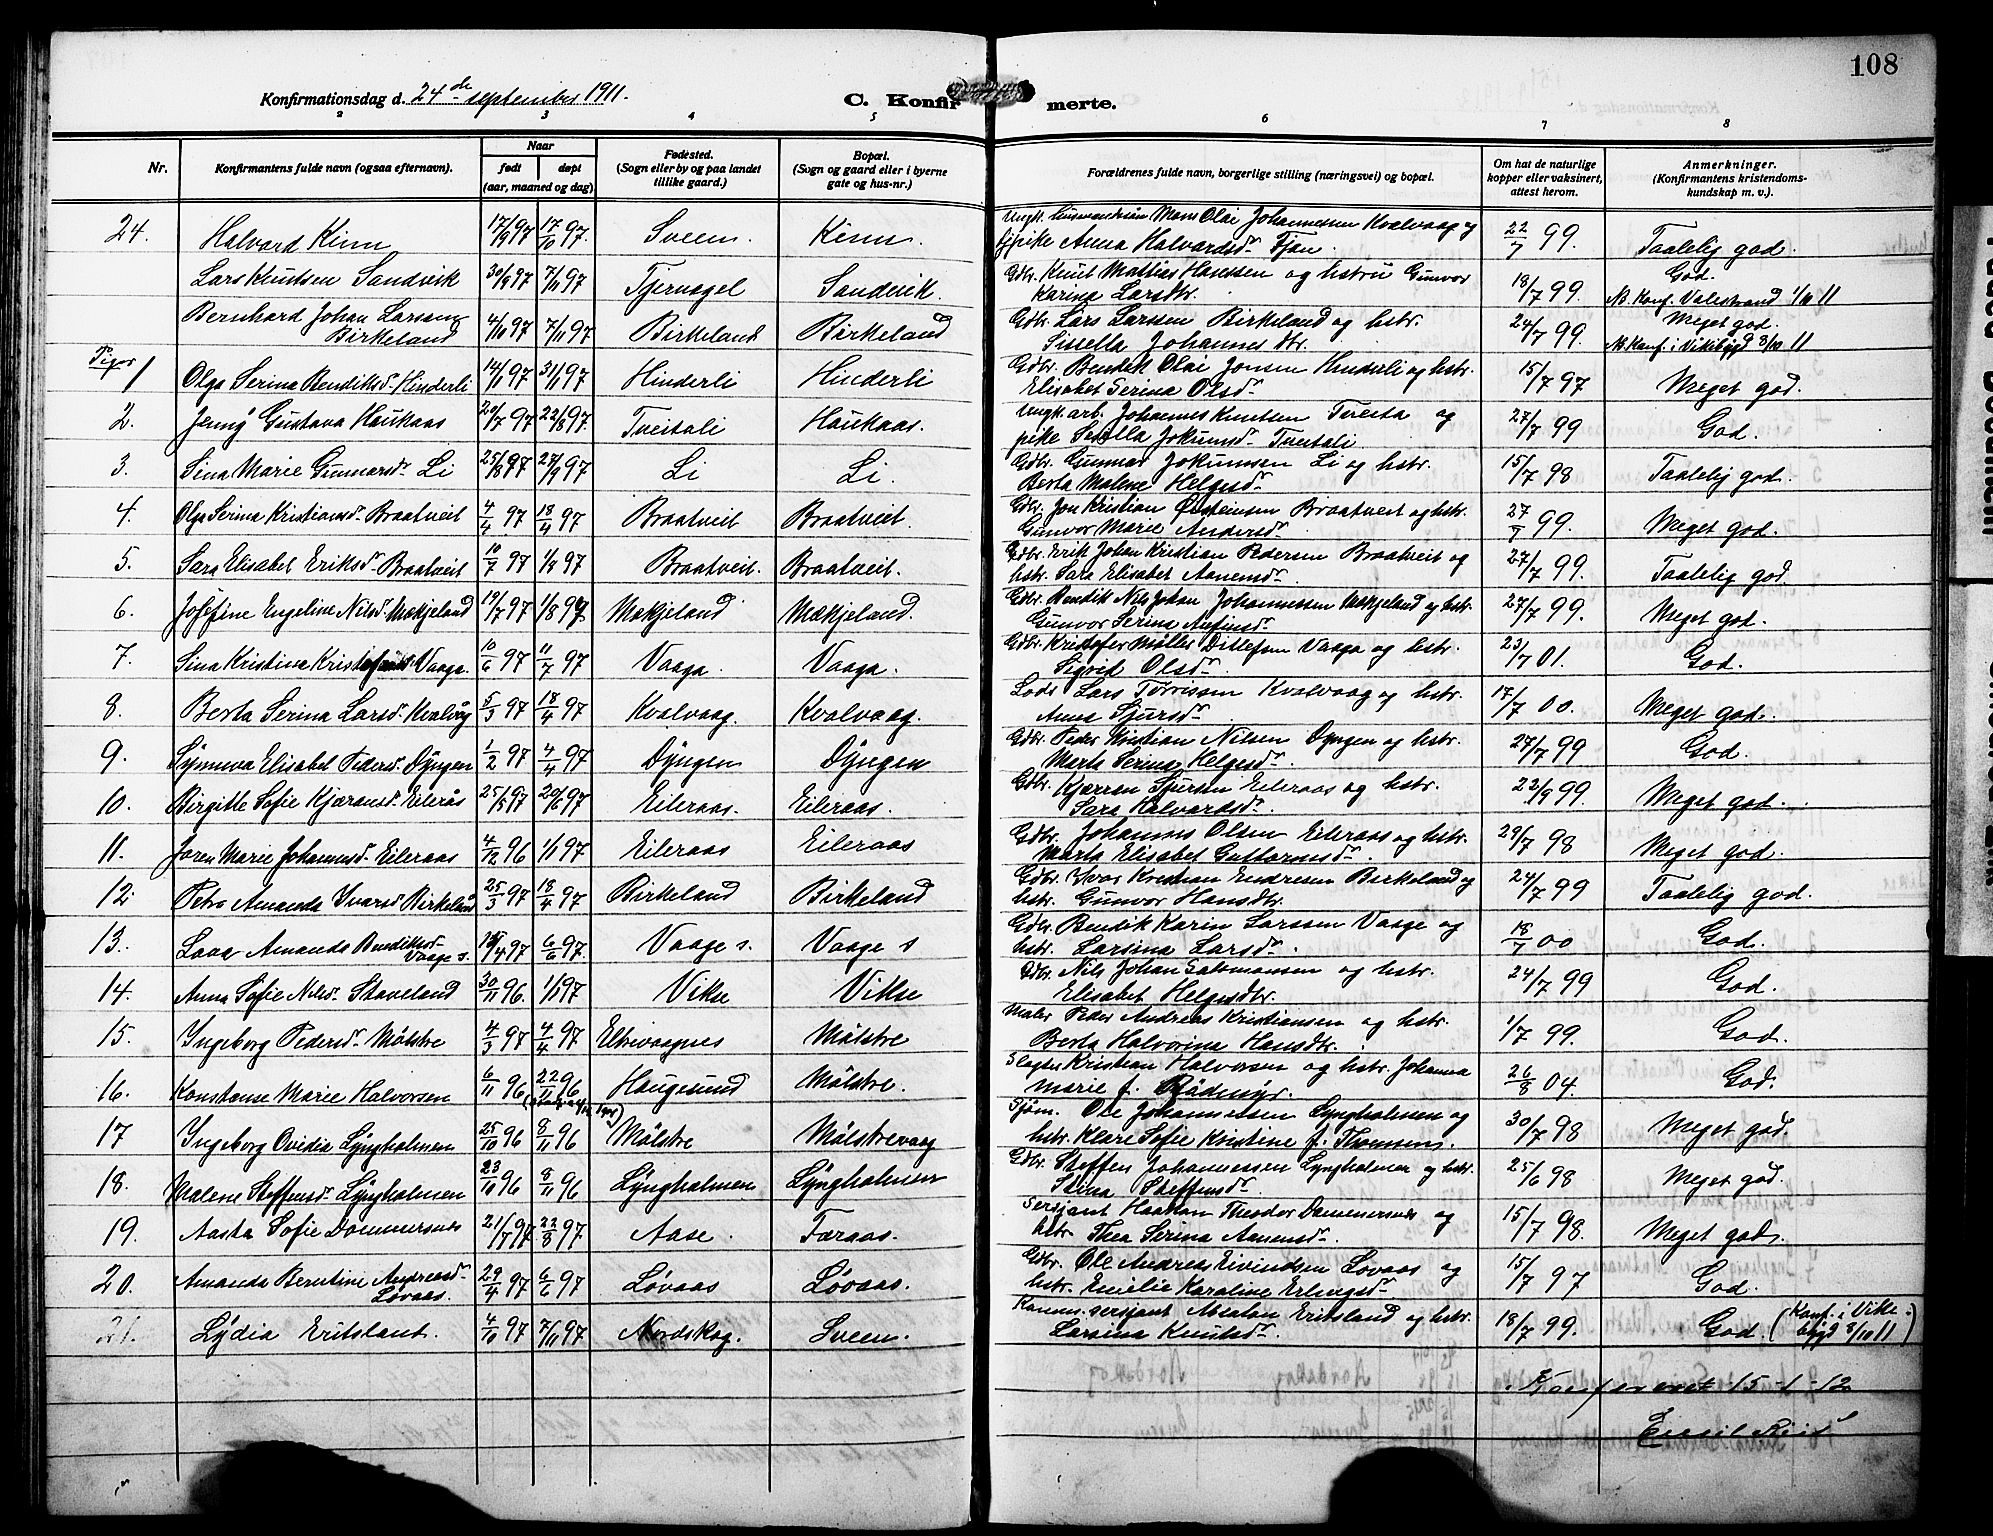 108
Konfirmationsdag d. 24de september 1911.
C. Konfirmerte.
2 3 4 5 6 7 8
Nr. Konfirmantens fulde navn (ogsaa efternavn). Naar født døpt (aar, maaned og dag) Fødested. (Sogn eller by og paa landet tillike gaard.) Bopæl. (Sogn og gaard eller i byerne gate og hus-nr.) Forældrenes fulde navn, borgerlige stilling (næringsvei) og bopæl. Om hat de naturlige kopper eller vaksinert, attest herom. Anmerkninger. (Konfirmantens kristendomskundskap m. v.).
24. Halvard Kinn 17/9 97 17/10 97. Sveen. Kinn. Ungk. husmandssøn Mons Olai Johannessen Kvalvaag og pike Anna Halvardsd. Tjøn. 22/7 99. Taalelig god.
Lars Knutsen Sandvik 30/9 97 7/11 97 Tjernagel Sandvik. Gdbr. Knut Mathias Hanssen og hstru Gunvor Karina Larsdtr. 18/7 99. God. NB. Konf. Valestrand 1/10 11
Bernhard Johan Larssen Birkeland 4/10 97 7/11 97 Birkeland Birkeland Gdbr. Lars Larssen Birkeland og hstr. Sissella Johannesdtr. 24/7 99. Meget god. NB. Konf. i Vikebygd 8/10 11
Piger
1 Olga Serina Bendiksd. Hinderli 14/1 97 31/1 97 Hinderli Hinderli Gdbr. Bendik Olai Jonsen Hinderli og hstr. Elisabet Serina Olsd. 15/7 97 Meget god.
2. Jenny Gustava Haukaas 20/7 97 22/8 97. Tveitali Haukaas. Ungk. arb. Johannes Knutsen Tveita og pike Sissella Jokumsd. Tveitali 27/7 99 God.
3. Sina Marie Gunnarsd. Li 25/8 97 27/9 97 Li Li. Gdbr. Gunnar Jokumsen Li og hstr. Berta Malene Helgesd. 15/7 98 Taalelig god.
4. Olga Serina Kristiansd. Braatveit 4/4 97 18/4 97 Braatveit Braatveit. Gdbr. Jon Kristian Østensen Braatveit og hstr. Gunvor Marie Andersd. 27/7 99. Meget god.
5. Sara Elisabet Eriksd. Braatveit 10/7 97 1/8 97 Braatveit. Braatveit. Gdbr. Erik Johan Kristian Pedersen Braatveit og hstr. Sara Elisabet Aanensd. 27/7 99. Taalelig god.
6. Josefine Engeline Nilsd. Mækjeland 19/7 97 1/8 97 Mækjeland Mækjeland. Gdbr. Bendik Nils Johan Johannessen Mækjeland og hstr. Gunvor Serina Anfinsd. 27/7 99. Meget god.
7. Sina Kristina Kristofersd. Vaaga. 10/6 97 11/7 97 Vaaga. Vaaga. Gdbr. Kristofer Møller Ditlefsen Vaaga og hstr. Sigrid Olsd. 23/7 01. God.
8. Berta Serina Larsd. Kvalvåg 5/3 97 18/4 97 Kvalvaag. Kvalvaag. Lods Lars Torrissen Kvalvaag og hstr. Anna Sjursd. 17/7 00. Meget god.
9. Synnuva Elisabet Pedersd. Dyngen 1/2 97 4/4 97 Dyngen Dyngen Gdbr. Peder Kristian Nilsen Dyngen og hstr. Marta Serina Helgesd. 27/7 99 God.
10. Birgitte Sofie Kjæransd. Eilerås 25/5 97 20/6 97 Eileraas. Eileraas. Gdbr. Kjærran Sjursen Eileraas og hstr. Sara Halvardsd. 22/9 99. Meget god.
11. Joren Marie Johannesd. Eileraas 4/12 96 1/1 97 Eileraas Eileraas Gdbr. Johannes Olsen Eileraas og hstr. Marta Elisabet Guttormsd. 29/7 98 Meget god.
12. Petra Amanda Ivarsd. Birkeland 25/3 97 18/4 97 Birkeland Birkeland Gdbr. Ivar Kristian Endresen Birkeland og hstr. Gunvor Hansdtr. 24/7 99 Taalelig god.
13. Amanda Bendiksd. Vaage s. 97 6/6 97. Vaage s. Vaage s Gdbr. Bendik Karin Larssen Vaage og hstr. Larsina Larsd. 18/7 00 God.
14. Anna Sofie Nilsd. Staveland 30/11 96. 1/1 97 Vikse Vikse Gdbr. Nils Johan Salomonsen og hstr. Elisabet Helgesdtr. 24/7 99 God.
15. Ingeborg Pedersd. Mølstre 4/3 97 4/4 97 Eltrevaagnes Mølstre Maler Peder Andreas Kristiansen og hstr. Berta Halvorina Hansdtr. 1/7 99. God.
16. Konstanse Marie Halvorsen 6/11 96 22/11 96 Haugesund Mølstre. Slagter Kristian Halvorsen og hstr. Johanna Marie f. Rødmyr. 26/8 04. God.
17 Ingeborg Ovidia Lyngholmen 25/10 96 8/11 96 Mølstre Mølstrevaag Sjøm. Ole Johannessen Lyngholmen og hstr. Klara Sofie Kristine f. Thomsen. 30/7 98 Meget god.
18. Malene Steffensd. Lyngholmen 23/10 96 8/11 96 Lyngholmen Lyngholmen Gdbr. Steffen Johannessen Lyngholmen og hstr. Stina Steffensd. 25/6 98 Meget god.
19. Aasta Sofie Dommersnes 21/7 97 22/8 97 Aase. Færaas. Sersjant Haakon Theodor Dommersnes og hstr. Thea Serina Aanensd. 15/7 98. Meget god.
20. Amanda Berntine Andreasd. Løvaas. 29/4 97 6/6 97 Løvaas Løvaas. Gdbr. Ole Andreas Eivindsen Løvaas og hstr. Emilie Karoline Erlingsd. 15/7 97 God.
21. Lydia Eritsland. 4/10 97 7/11 97 Nordskog. Sveen. Komm.sersjant Absalon Eritsland og hstr. Larsina Knutsd. 18/7 99. God. (Konf. i Vikebygd 8/10 11)
Konfereret 15-1-12